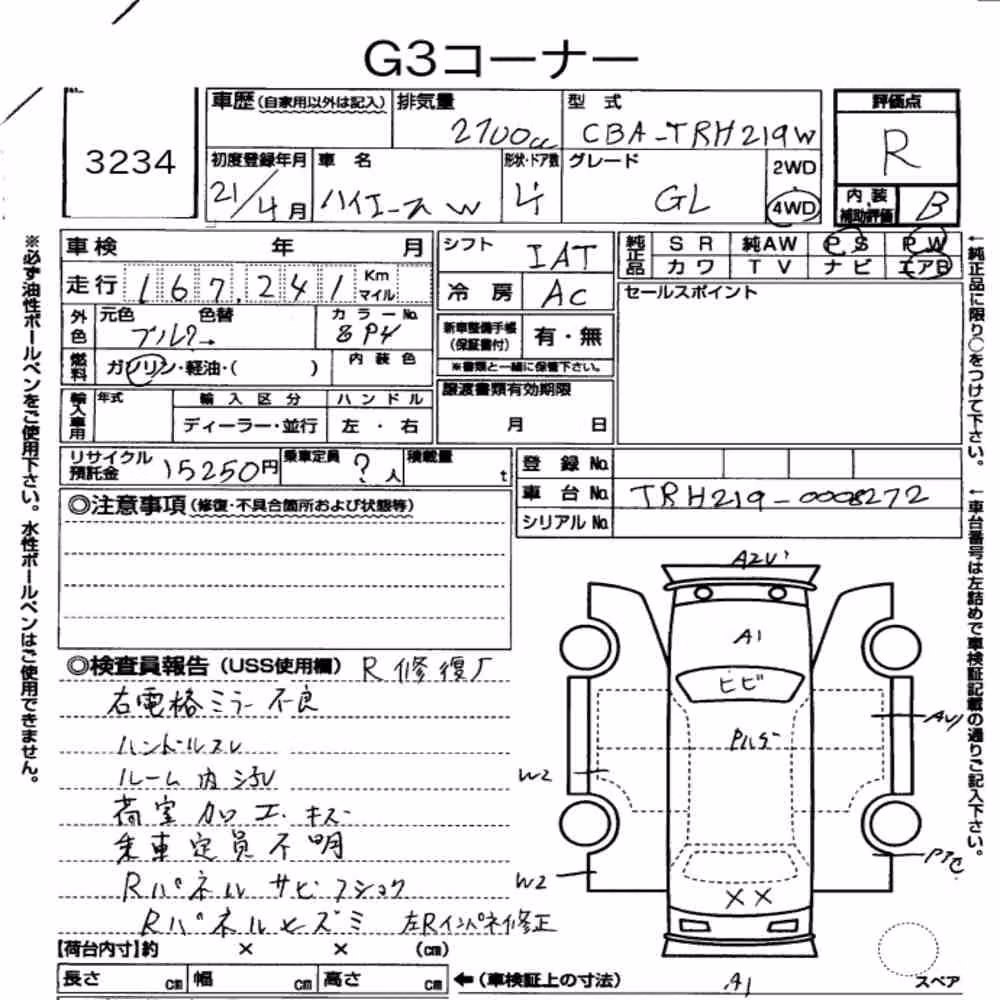 G3コーナー
3234
車歴(自家用以外は記入) 排気量 2700cc 型式 CBA-TRH219W
評価点 R
初度登録年月 21/4月 車名 ハイエースW 形状・ドア数 4 グレード GL 2WD 4WD
内装補助評価 B
車検 年 月
シフト IAT
純正品 SR 純AW PS PW
カワ TV ナビ エアB
走行 167,241 Km マイル
冷房 AC
セールスポイント
外色 元色 色替 カラーNo.
ブルー→ 8P4
新車整備手帳(保証書付) 有・無
※書類と一緒に保管下さい。
燃料 ガソリン・軽油・( ) 内装色
譲渡書類有効期限
月 日
輸入車用 年式 輸入区分 ハンドル
ディーラー・並行 左・右
リサイクル預託金 15250円 乗車定員 ?人 積載量 t
登録No.
車台No. TRH219-0008272
シリアルNo.
◎注意事項(修復・不具合箇所および状態等)
◎検査員報告(USS使用欄) R修復
右電格ミラー不良
ハンドルスレ
ルーム内
荷室加工.キズ
乗車定員不明
Rパネルサビフショク
Rパネルヒズミ 左Rインパネ修正
【荷台内寸】約 × × (cm)
長さ cm 幅 cm 高さ cm ←(車検証上の寸法)
A2U
A1
ヒビ
W2
W2
××
A1
スペア
※必ず油性ボールペンをご使用下さい。水性ボールペンはご使用できません。
←純正品に限り○をつけて下さい。
←車台番号は左詰めで車検証記載の通りご記入下さい。